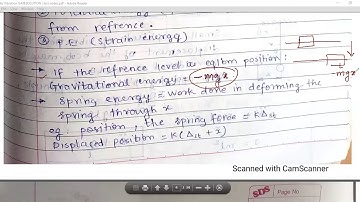 from refrence.
③ P.E. (strain energy)
→ If the refrence level is eqlbm position:
Gravitational energy = -mgx
→ Spring energy = work done in deforming the
spring through x
eq position, the spring force = KΔst
Displaced position = K(Δst + x)
-mgx
Scanned with CamScanner
SDS
Page No